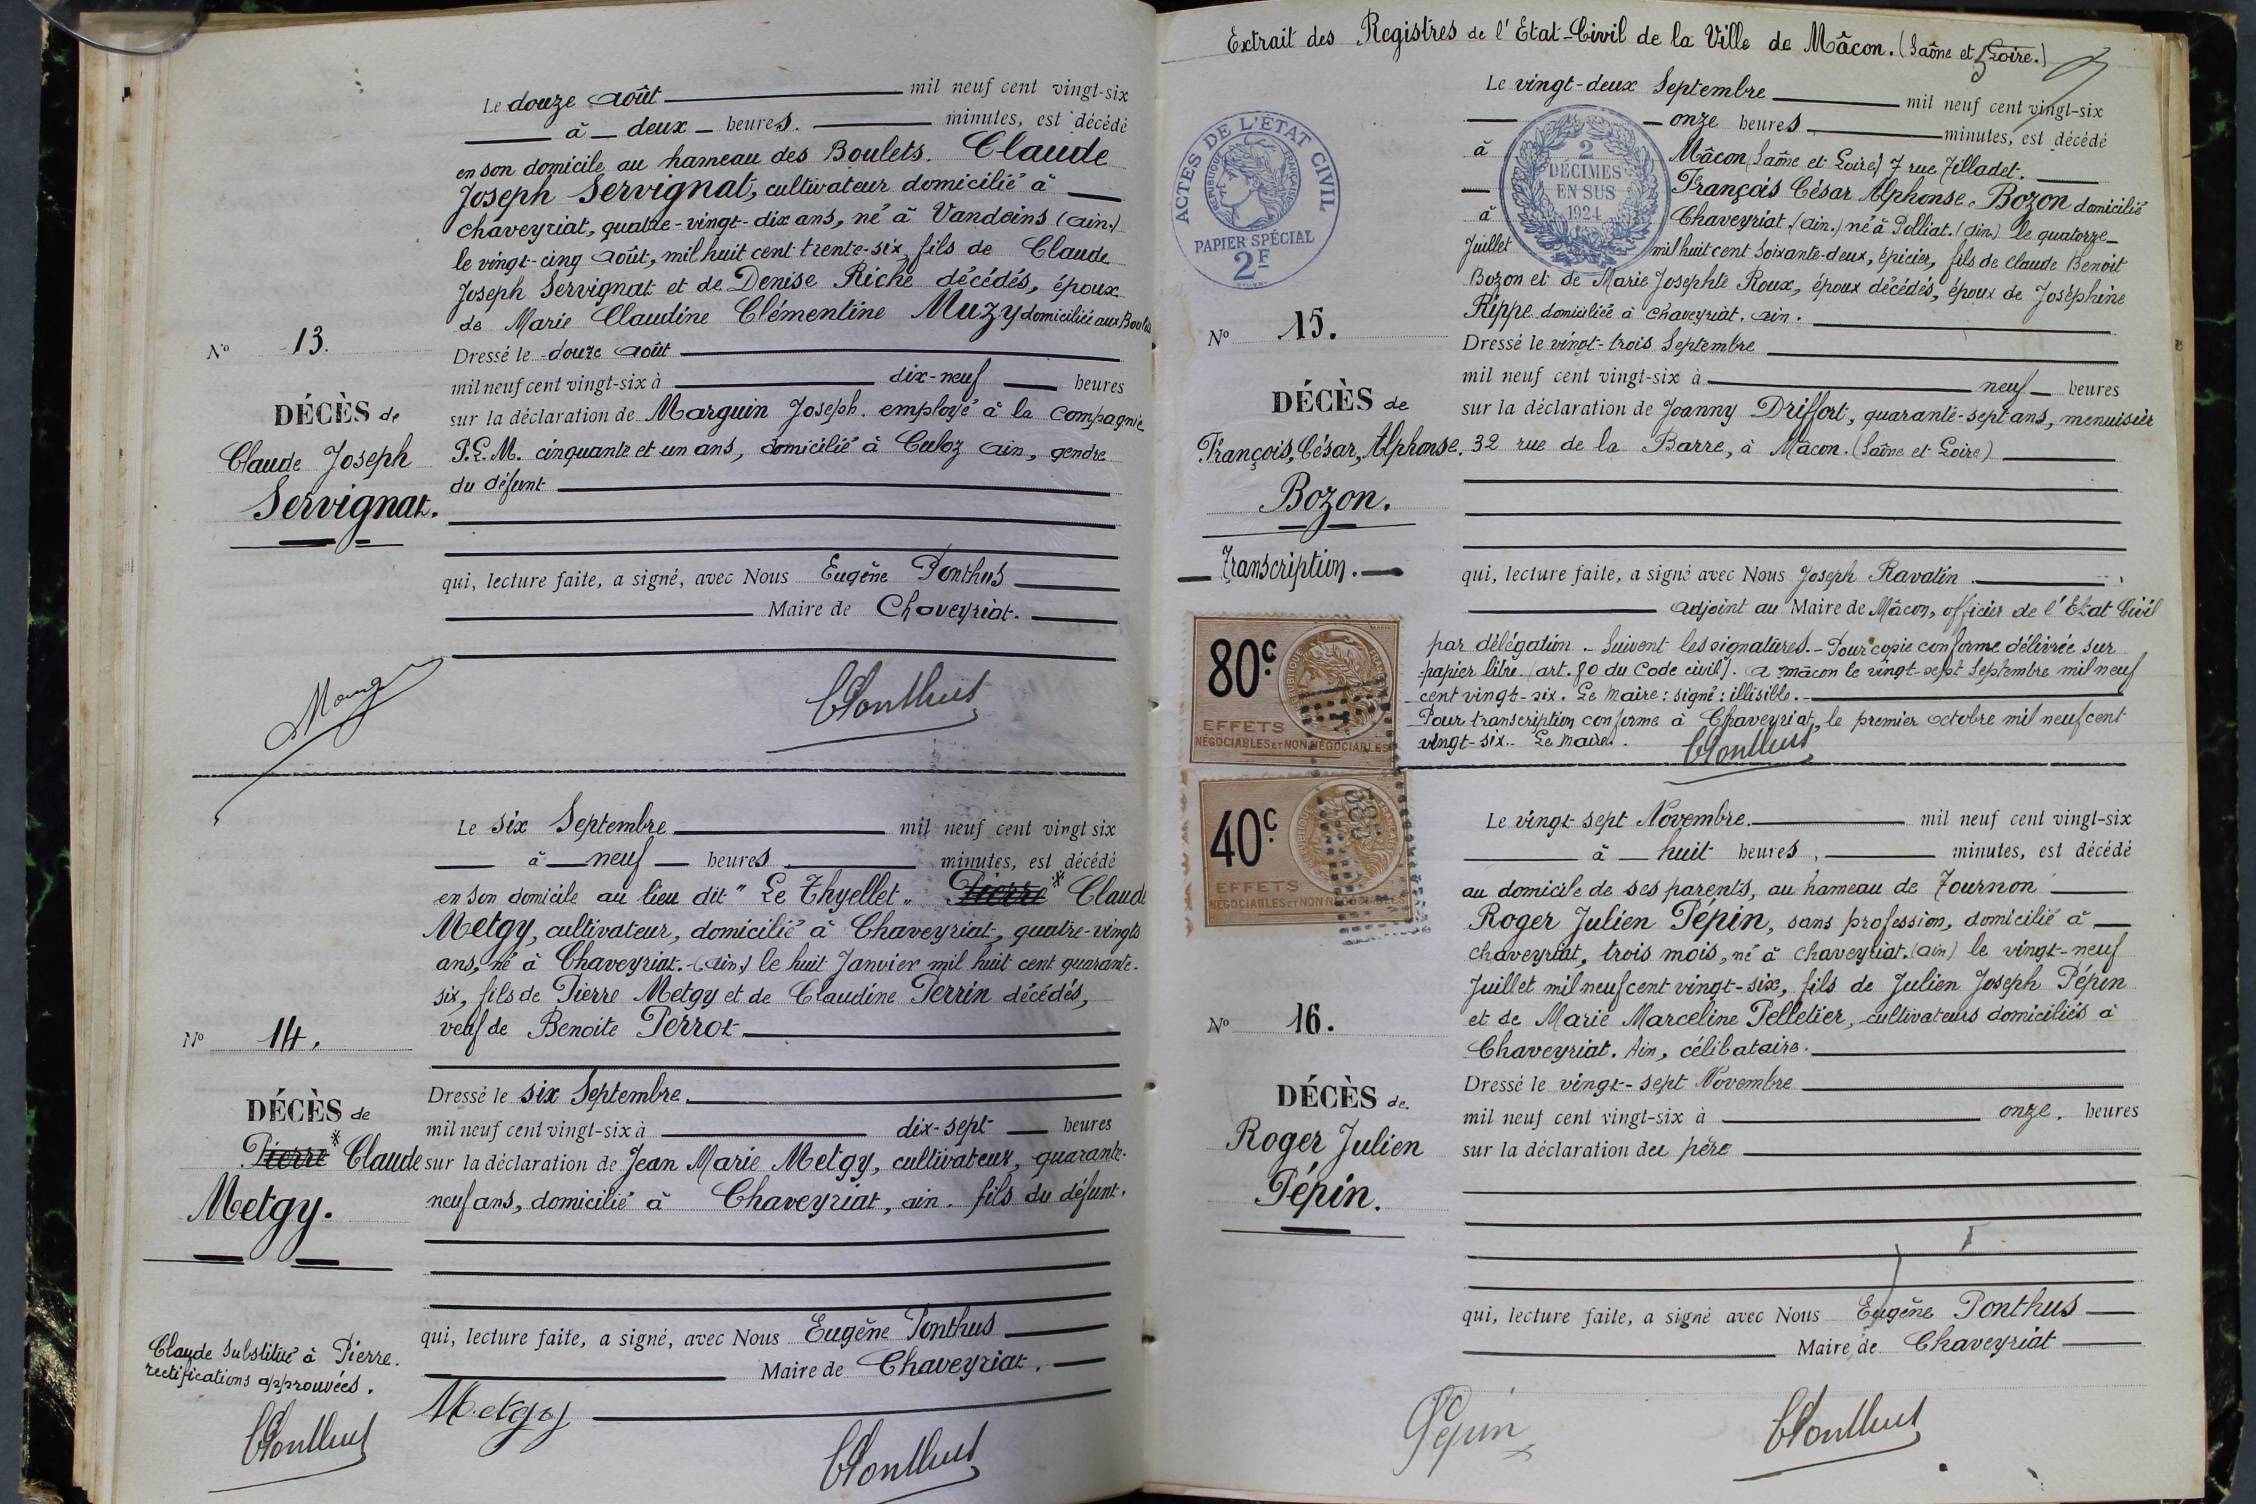 Le douze août mil neuf cent vingt-six
à deux heures. minutes, est décédé
en son domicile au hameau des Boulets. Claude
Joseph Servignat, cultivateur domicilié à
Chaveyriat, quatre-vingt-dix ans, né à Vandeins (ain.)
le vingt-cinq août, mil huit cent trente-six, fils de Claude
Joseph Servignat et de Denise Riche décédés, époux
de Marie Claudine Clémentine Muzy domiciliée aux Boulets
Nº 13.
Dressé le douze août
mil neuf cent vingt-six à dix-neuf heures
DÉCÈS de
Claude Joseph
Servignat.
sur la déclaration de Marguin Joseph. employé à la Compagnie
P.L.M. cinquante et un ans, domicilié à Culoz ain, gendre
du défunt
qui, lecture faite, a signé, avec Nous Eugène Ponthus
Maire de Chaveyriat.
EPonthus
Le six Septembre mil neuf cent vingt six
à neuf heures minutes, est décédé
en son domicile au lieu dit "Le Thyellet" Pierre * Claude
Metgy, cultivateur, domicilié à Chaveyriat, quatre-vingts
ans, né à Chaveyriat. (ain.) le huit Janvier mil huit cent quarante-
six, fils de Pierre Metgy et de Claudine Perrin décédés,
veuf de Benoite Perrot
Nº 14.
Dressé le six Septembre.
mil neuf cent vingt-six à dix-sept heures
DÉCÈS de
Pierre * Claude
Metgy.
sur la déclaration de Jean Marie Metgy, cultivateur, quarante-
neuf ans, domicilié à Chaveyriat, ain. fils du défunt.
qui, lecture faite, a signé, avec Nous Eugène Ponthus
Maire de Chaveyriat.
Claude substitué à Pierre.
rectifications approuvées.
EPonthus
Metgy
EPonthus
Extrait des Registres de l'Etat-Civil de la Ville de Mâcon. (Saône et Loire.)
Le vingt-deux Septembre mil neuf cent vingt-six
onze heures minutes, est décédé
à Mâcon (Saône et Loire) 7 rue Tilladet.
François César Alphonse Bozon domicilié
à Chaveyriat. (ain.) né à Polliat. (ain.) le quatorze
Juillet mil huit cent soixante-deux, épicier, fils de Claude Benoit
Bozon et de Marie Josephte Roux, époux décédés, époux de Joséphine
Rippe domiciliée à Chaveyriat. ain.
ACTES DE L'ÉTAT CIVIL
RÉPUBLIQUE FRANÇAISE
PAPIER SPÉCIAL
2F
2
DÉCIMES
EN SUS
1924
Nº 15.
Dressé le vingt-trois Septembre
mil neuf cent vingt-six à neuf heures
DÉCÈS de
François, César, Alphonse.
Bozon.
Transcription.
sur la déclaration de Joanny Driffort, quarante-sept ans, menuisier
32 rue de la Barre, à Mâcon. (Saône et Loire)
qui, lecture faite, a signé avec Nous Joseph Ravatin
adjoint au Maire de Mâcon, officier de l'Etat Civil
par délégation. Suivent les signatures. - Pour copie conforme délivrée sur
papier libre. (art. 80 du Code civil). a mâcon le vingt-sept Septembre mil neuf
cent vingt-six. Le maire: signé: illisible.
Pour transcription conforme à Chaveyriat, le premier octobre mil neuf cent
vingt-six. Le Maire.
EPonthus
80c
EFFETS
NÉGOCIABLES ET NON NÉGOCIABLES
40c
EFFETS
NÉGOCIABLES ET NON NÉGOCIABLES
Le vingt-sept Novembre. mil neuf cent vingt-six
à huit heures, minutes, est décédé
au domicile de ses parents, au hameau de Tournon
Roger Julien Pépin, sans profession, domicilié à
chaveyriat, trois mois, né à chaveyriat. (ain) le vingt-neuf
Juillet mil neuf cent vingt-six, fils de Julien Joseph Pépin
et de Marie Marceline Pelletier, cultivateurs domiciliés à
Chaveyriat. Ain, célibataire.
Nº 16.
Dressé le vingt-sept Novembre
mil neuf cent vingt-six à onze. heures
DÉCÈS de
Roger Julien
Pépin.
sur la déclaration du père
qui, lecture faite, a signé avec Nous Eugène Ponthus
Maire de Chaveyriat
Pépin
EPonthus